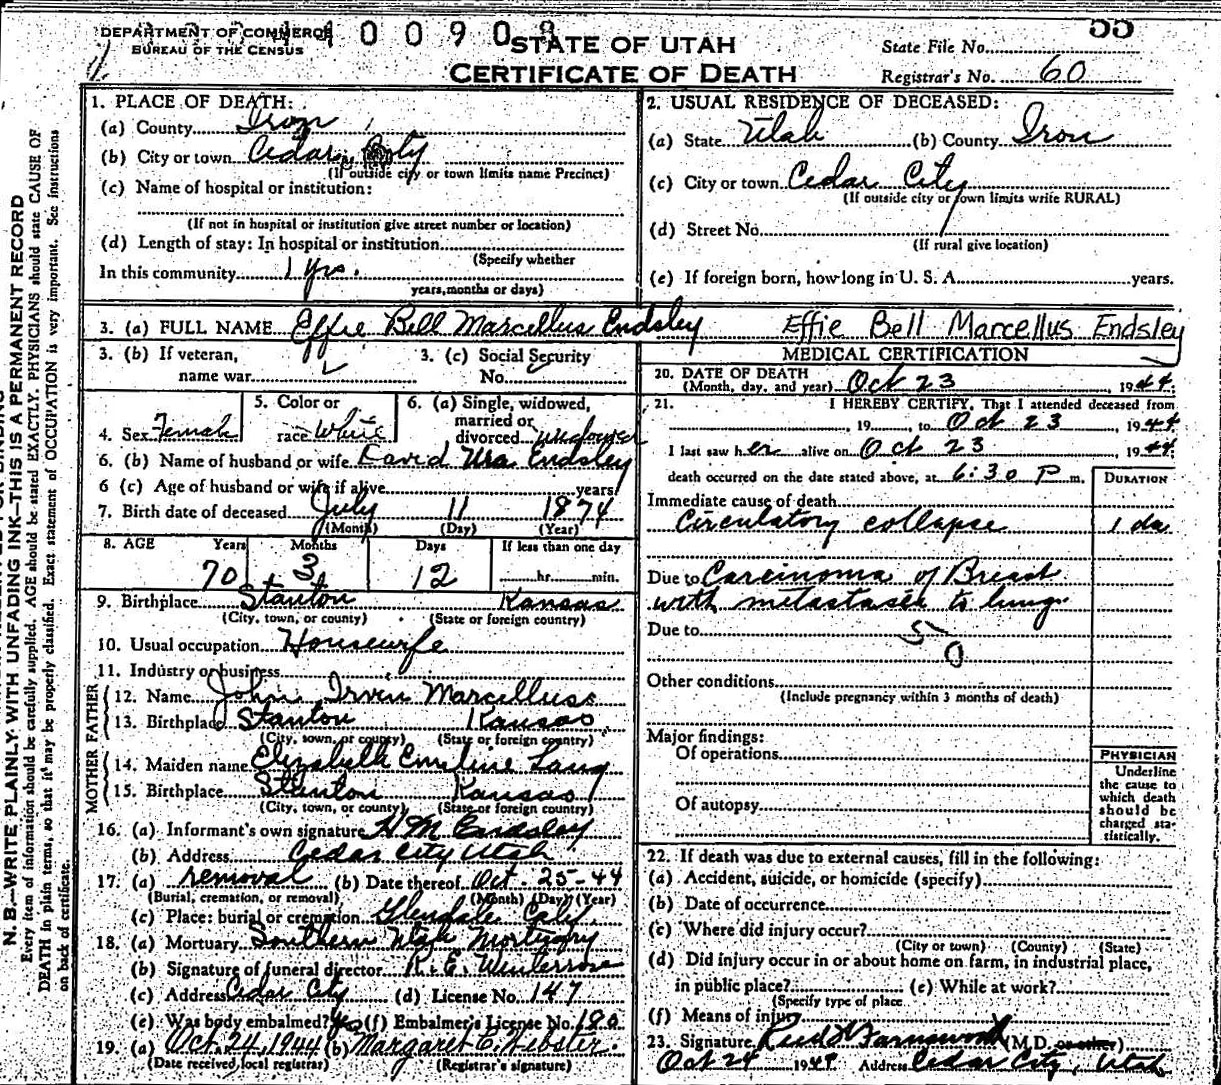 DEPARTMENT OF COMMERCE
BUREAU OF THE CENSUS
0 0 9 0
STATE OF UTAH
CERTIFICATE OF DEATH
55
State File No.
Registrar's No. 60
N. B.—WRITE PLAINLY WITH UNFADING INK—THIS IS A PERMANENT RECORD
Every item of information should be carefully supplied. AGE should be stated EXACTLY. PHYSICIANS should state CAUSE OF
DEATH in plain terms, so that it may be properly classified. Exact statement of OCCUPATION is very important. See instructions
on back of certificate.
1. PLACE OF DEATH:
(a) County Iron
(b) City or town Cedar City
(If outside city or town limits name Precinct)
(c) Name of hospital or institution:
(If not in hospital or institution give street number or location)
(d) Length of stay: In hospital or institution
(Specify whether
In this community 1 yrs.
years, months or days)
2. USUAL RESIDENCE OF DECEASED:
(a) State Utah (b) County Iron
(c) City or town Cedar City
(If outside city or town limits write RURAL)
(d) Street No.
(If rural give location)
(e) If foreign born, how long in U. S. A. years.
3. (a) FULL NAME Effie Bell Marcellus Endsley Effie Bell Marcellus Endsley
3. (b) If veteran, name war
3. (c) Social Security No.
4. Sex Female
5. Color or race White
6. (a) Single, widowed, married or divorced widowed
6. (b) Name of husband or wife David Ura Endsley
6 (c) Age of husband or wife if alive years
7. Birth date of deceased July 11 1874
(Month) (Day) (Year)
8. AGE Years Months Days If less than one day
70 3 12 hr. min.
9. Birthplace Stanton Kansas
(City, town, or county) (State or foreign country)
10. Usual occupation Housewife
11. Industry or business
FATHER
12. Name John Irvin Marcelluse
13. Birthplace Stanton Kansas
(City, town, or county) (State or foreign country)
MOTHER
14. Maiden name Elizabeth Emeline Lang
15. Birthplace Stanton Kansas
(City, town, or county) (State or foreign country)
16. (a) Informant's own signature H M Endsley
(b) Address Cedar City Utah
17. (a) removal (b) Date thereof Oct. 25-44
(Burial, cremation, or removal) (Month) (Day) (Year)
(c) Place: burial or cremation Glendale Calif
18. (a) Mortuary Southern Utah Mortuary
(b) Signature of funeral director R. E. Winterrose
(c) Address Cedar City (d) License No. 147
(e) Was body embalmed? yes (f) Embalmer's License No. 180
19. (a) Oct. 24, 1944 (b) Margaret E. Webster.
(Date received local registrar) (Registrar's signature)
MEDICAL CERTIFICATION
20. DATE OF DEATH
(Month, day, and year) Oct 23, 1944.
21. I HEREBY CERTIFY, That I attended deceased from
, 19 , to Oct 23, 1944
I last saw her alive on Oct 23, 1944
death occurred on the date stated above, at 6:30 P m.
DURATION
Immediate cause of death
Circulatory collapse 1 da
Due to Carcinoma of Breast
with metastases to lung.
Due to
50
Other conditions
(Include pregnancy within 3 months of death)
Major findings:
Of operations
Of autopsy
PHYSICIAN
Underline
the cause to
which death
should be
charged sta-
tistically.
22. If death was due to external causes, fill in the following:
(a) Accident, suicide, or homicide (specify)
(b) Date of occurrence
(c) Where did injury occur?
(City or town) (County) (State)
(d) Did injury occur in or about home on farm, in industrial place,
in public place? (e) While at work?
(Specify type of place
(f) Means of injury
23. Signature Reed W Farnsworth (M.D. or other)
Oct 24 1944 Address Cedar City, Utah